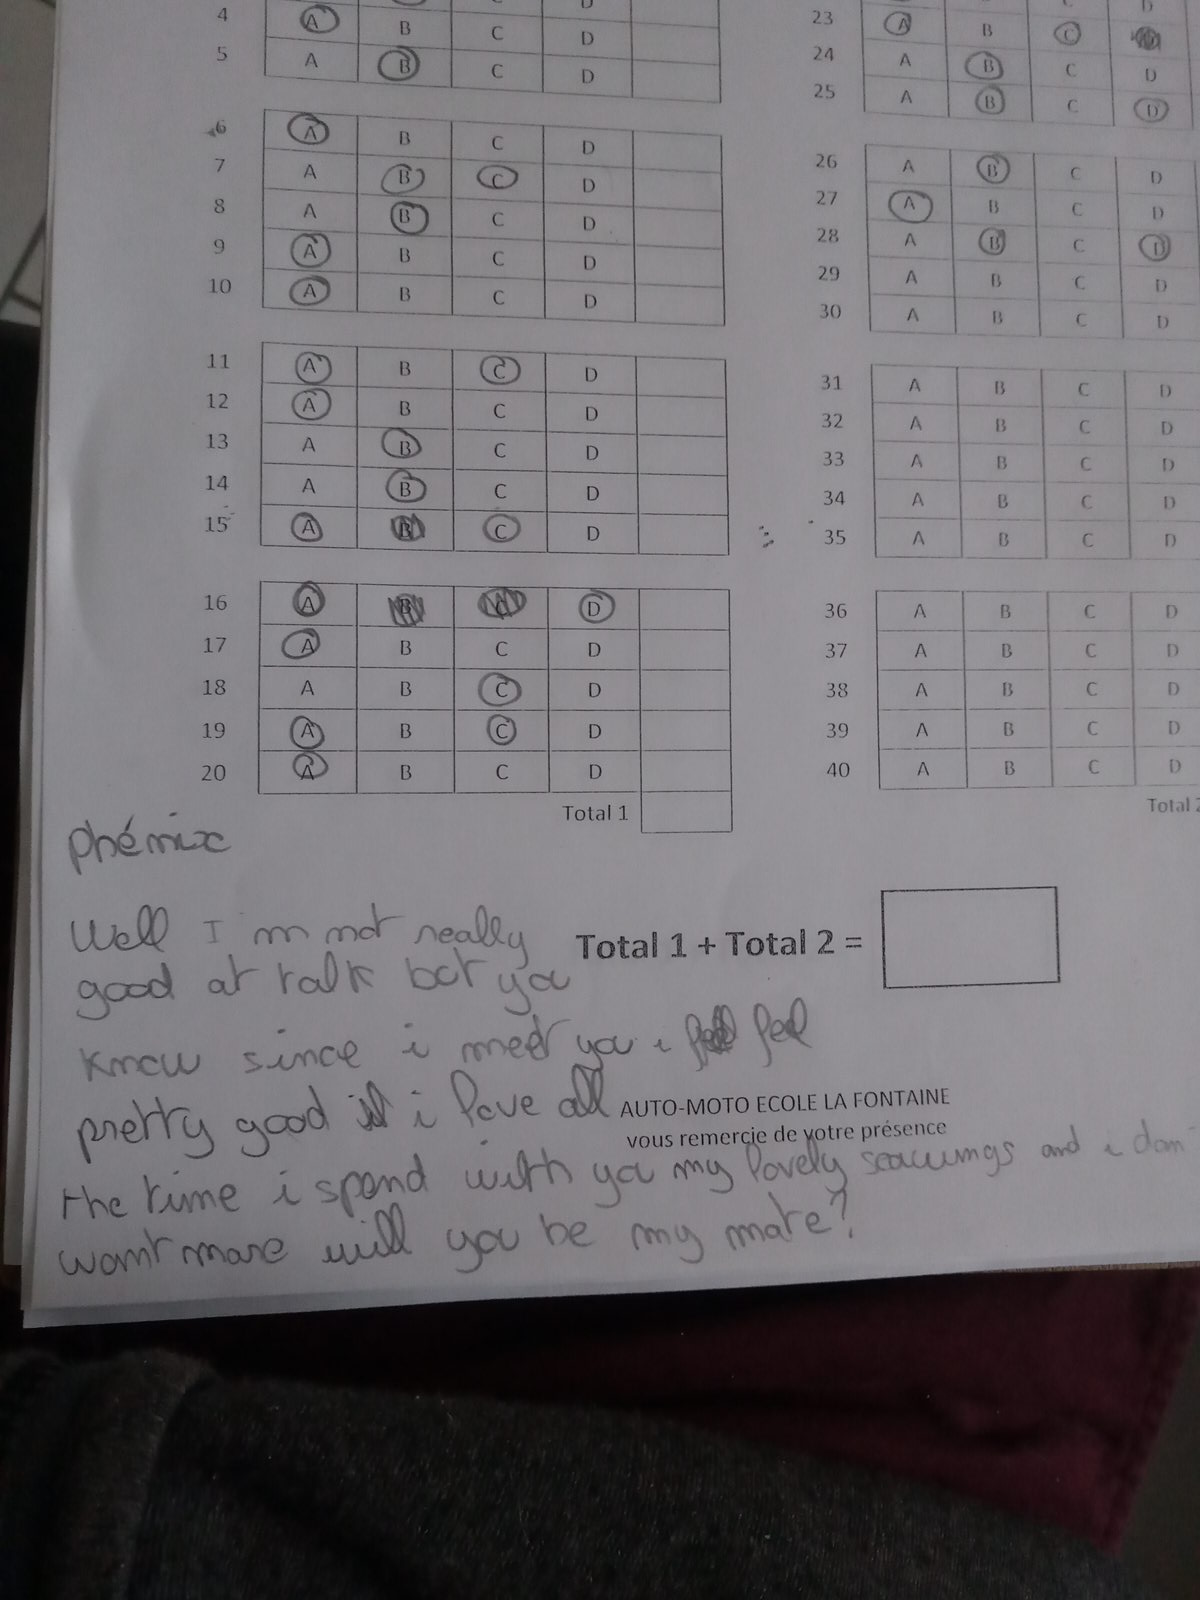 4 A B C D
5 A B C D
6 A B C D
7 A B C D
8 A B C D
9 A B C D
10 A B C D
11 A B C D
12 A B C D
13 A B C D
14 A B C D
15 A B C D
16 A B C D
17 A B C D
18 A B C D
19 A B C D
20 A B C D
Total 1
23 A B C
24 A B C D
25 A B C D
26 A B C D
27 A B C D
28 A B C D
29 A B C D
30 A B C D
31 A B C D
32 A B C D
33 A B C D
34 A B C D
35 A B C D
36 A B C D
37 A B C D
38 A B C D
39 A B C D
40 A B C D
Total 2
Total 1 + Total 2 =
AUTO-MOTO ECOLE LA FONTAINE
vous remercie de votre présence
Phénix
Well I'm not really
good at talk but you
know since i meet you i feel
pretty good i love all
the time i spend with you my lovely and i don
want more will you be my mate?